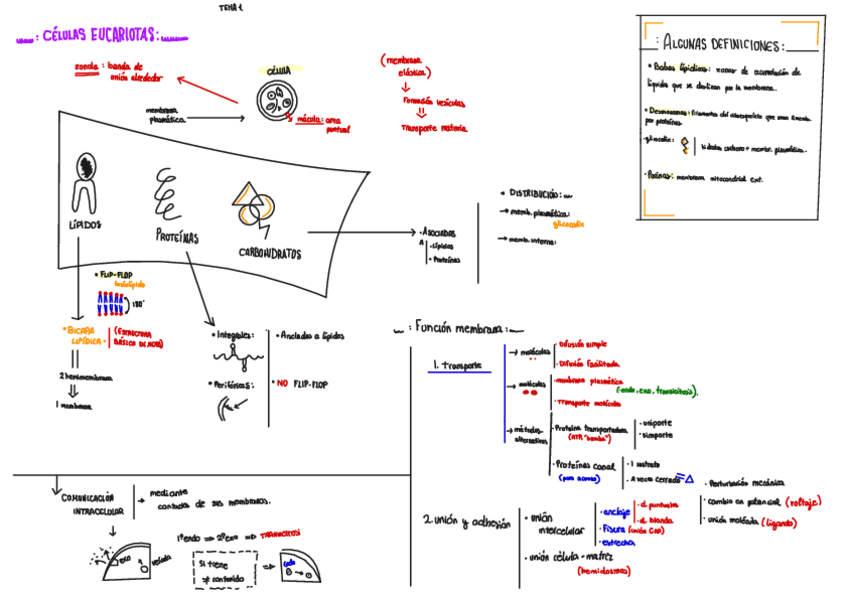 TEMA 1
CÉLULAS EUCARIOTAS:
zonula: banda de
unión alrededor
CÉLULA
(membrana
elástica)
Formación vesículas
Transporte materia
membrana
plasmática
mácula: area
puntual
LÍPIDOS
PROTEÍNAS
CARBOHIDRATOS
• ASOCIADOS
A
• Lípidos
• Proteínas
• DISTRIBUCIÓN:
→ memb. plasmática:
glicocalix
→ memb. interna:
: ALGUNAS DEFINICIONES:
• Balsas lipídicas: zonas de acumulación de
lípidos que se deslizan por la membrana.
• Desmosomas: filamentos del citoesqueleto que
por proteínas.
• glicocalix:
hidratos carbono + memb. plasmática.
• Porinas: membrana mitocondrial ext.
• FLIP-FLOP
180°
• BICAPA
LIPÍDICA •
(ESTRUCTURA
BÁSICA DE
2 hemimembrana
1 membrana
• Integrales:
• Anclados a lípidos
• Periféricas:
• NO FLIP-FLOP
COMUNICACIÓN
INTRACELULAR
→ mediante
contacto de sus membranas.
1º endo ⇒ 2º exo ⇒
exo
vesícula
Si tiene
≠ contenido
: Función membrana:
1. Transporte
→ moléculas
• Difusión simple
• Difusión facilitada
→ moléculas
• membrana plasmática
(endo, exo, transcitosis).
• Transporte moléculas
→ métodos
alternativos
• Proteína transportadora
(ATP "bomba")
• uniporte
• simporte
• Proteínas canal
(paso acuoso)
• 1 sustrato
• A veces cerrado
• Perturbación mecánica
• cambio en potencial (voltaje)
• unión molécula (ligando)
2. unión y adhesión
• unión
intercelular
• anclaje
• d. puntual
• d. banda
• Fisura (unión GAP)
• estrecha
• unión célula-matriz
(hemidesmos)